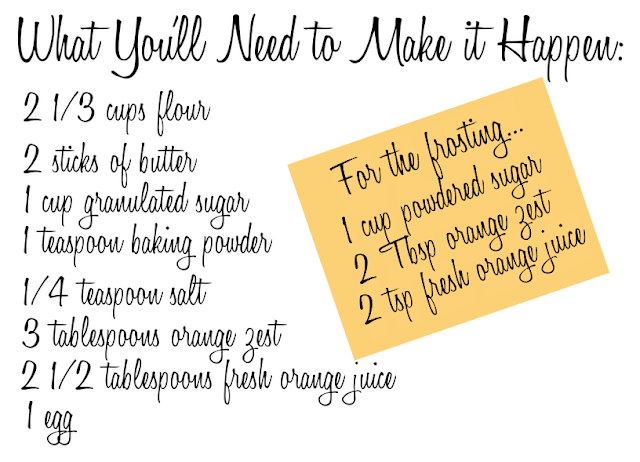 What You'll Need to Make it Happen:
2 1/3 cups flour
2 sticks of butter
1 cup granulated sugar
1 teaspoon baking powder
1/4 teaspoon salt
3 tablespoons orange zest
2 1/2 tablespoons fresh orange juice
1 egg
For the frosting...
1 cup powdered sugar
2 Tbsp orange zest
2 tsp fresh orange juice